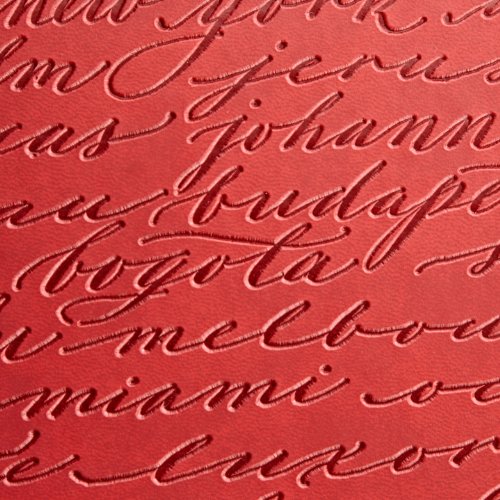 new york
jerus
johann
budape
bogota
melbou
miami
luxor